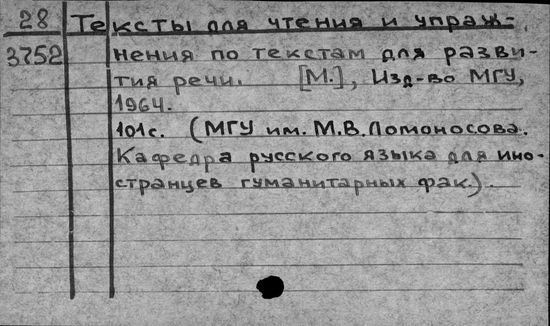 28 Тексты для чтения и упраж-
3752 нения по текстам для разви-
тия речи. [М.], Изд-во МГУ,
1964.
101с. (МГУ им. М.В.Ломоносова.
Кафедра русского языка для ино-
странцев гуманитарных фак.).